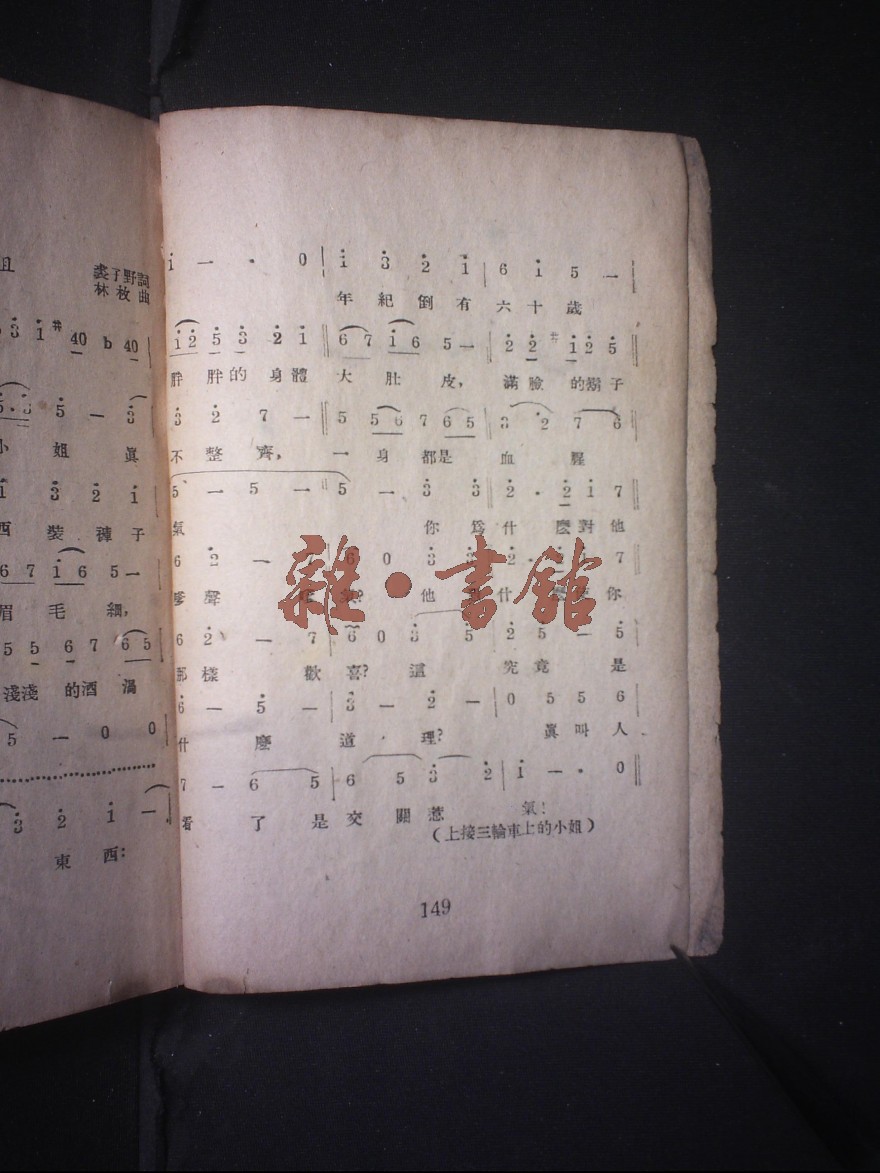 且
裘子野詞
林枚曲
3 i #40 b 40
5·3 5 — 3
小姐真
i 3 2 i
西裝褲子
6 7 i 6 5 —
眉毛細,
5 5 6 7 6 5
淺淺的酒渦
5 — 0 0
3 2 i —
東西:
i — · 0 | i 3 2 i | 6 i 5 —
年紀倒有六十歲
i 2 5 3 2 i || 6 7 i 6 5 — | 2 2 #i 2 5
胖胖的身體大肚皮,滿臉的鬍子
3 2 7 — || 5 5 6 7 6 5 || 3 2 7 6
不整齊,一身都是血腥
5 — 5 — || 5 — 3 3 || 2 · 2 i 7
氣 你爲什麼對他
6 2 — 7 6 0 3 3 2 · 2 i 7
爹聲 他 什 你
6 2 — 7 | 6 0 3 5 | 2 5 — 5
那樣歡喜?這究竟是
6 — 5 — | 3 — 2 — | 0 5 5 6
什麼道理?眞叫人
7 — 6 5 | 6 5 3 2 | i — · 0
看了是交關惹氣!
(上接三輪車上的小姐)
149
雜·書館